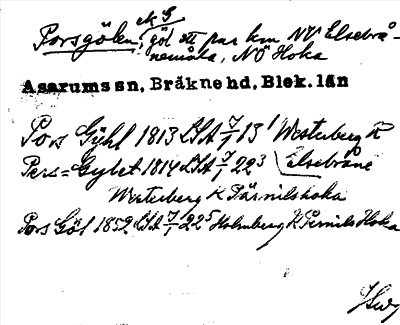 N G
Porsgölen, göl ett par km NV Elsebrå-
nemåla, NÖ Hoka
Asarums sn, Bräkne hd, Blek. län
Pors Gyhl 1813 LSA 7/1 13¹ Westerberg K
Pers=Gylet 1814 LSA 7/1 22³ Elsebråne
Westerberg K Pärnilshoka
Pors Göl 1852 LSA 7/1 22⁵ Holmberg K Pernils Hoka